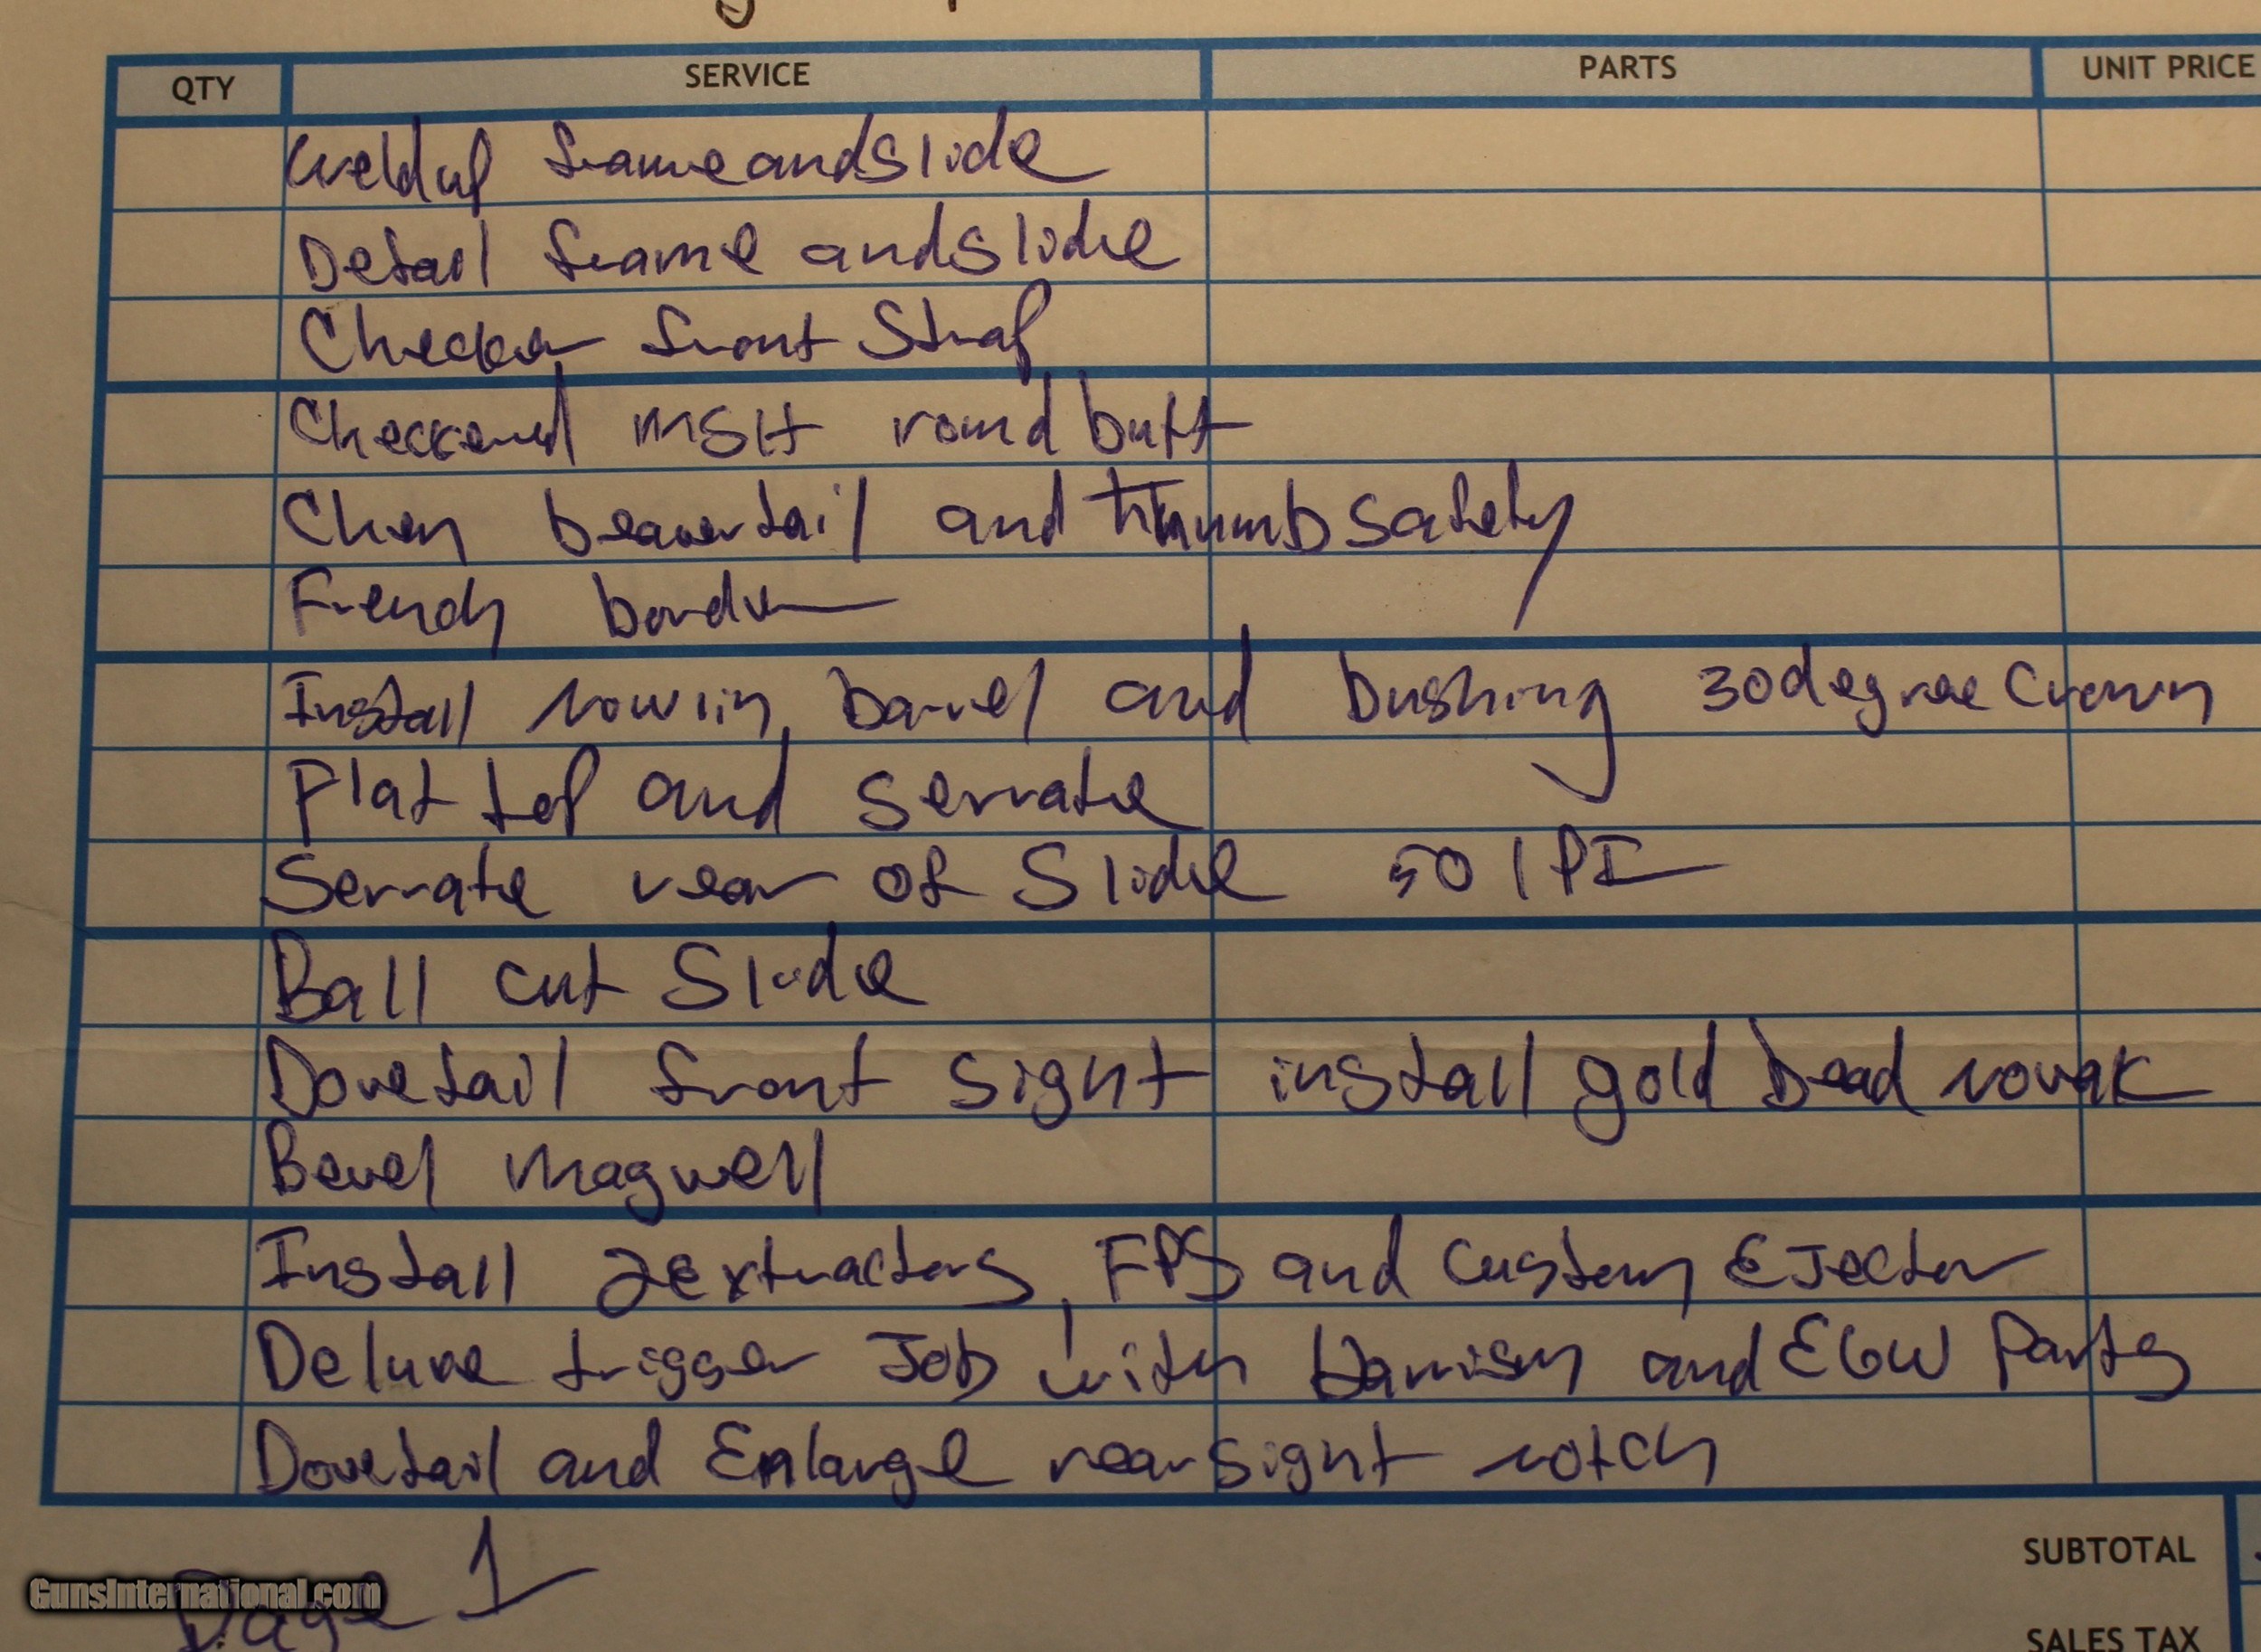 QTY SERVICE PARTS UNIT PRICE
Weldup frame and slide
Detail frame and slide
Checker front Strap
Checkered MSH round butt
Chen beavertail and thumb safety
French border
Install nowlin barrel and bushing 30 degree Crown
Flat top and serrate
Serrate rear of Slide 50 lPI
Ball cut Slide
Dovetail front sight install gold bead novak
Bevel magwell
Install 2 extractors, FPS and Custom EJector
Deluxe trigger Job with Harrison and EGW Parts
Dovetail and Enlarge rear sight notch
SUBTOTAL
Page 1
GunsInternational.com
SALES TAX